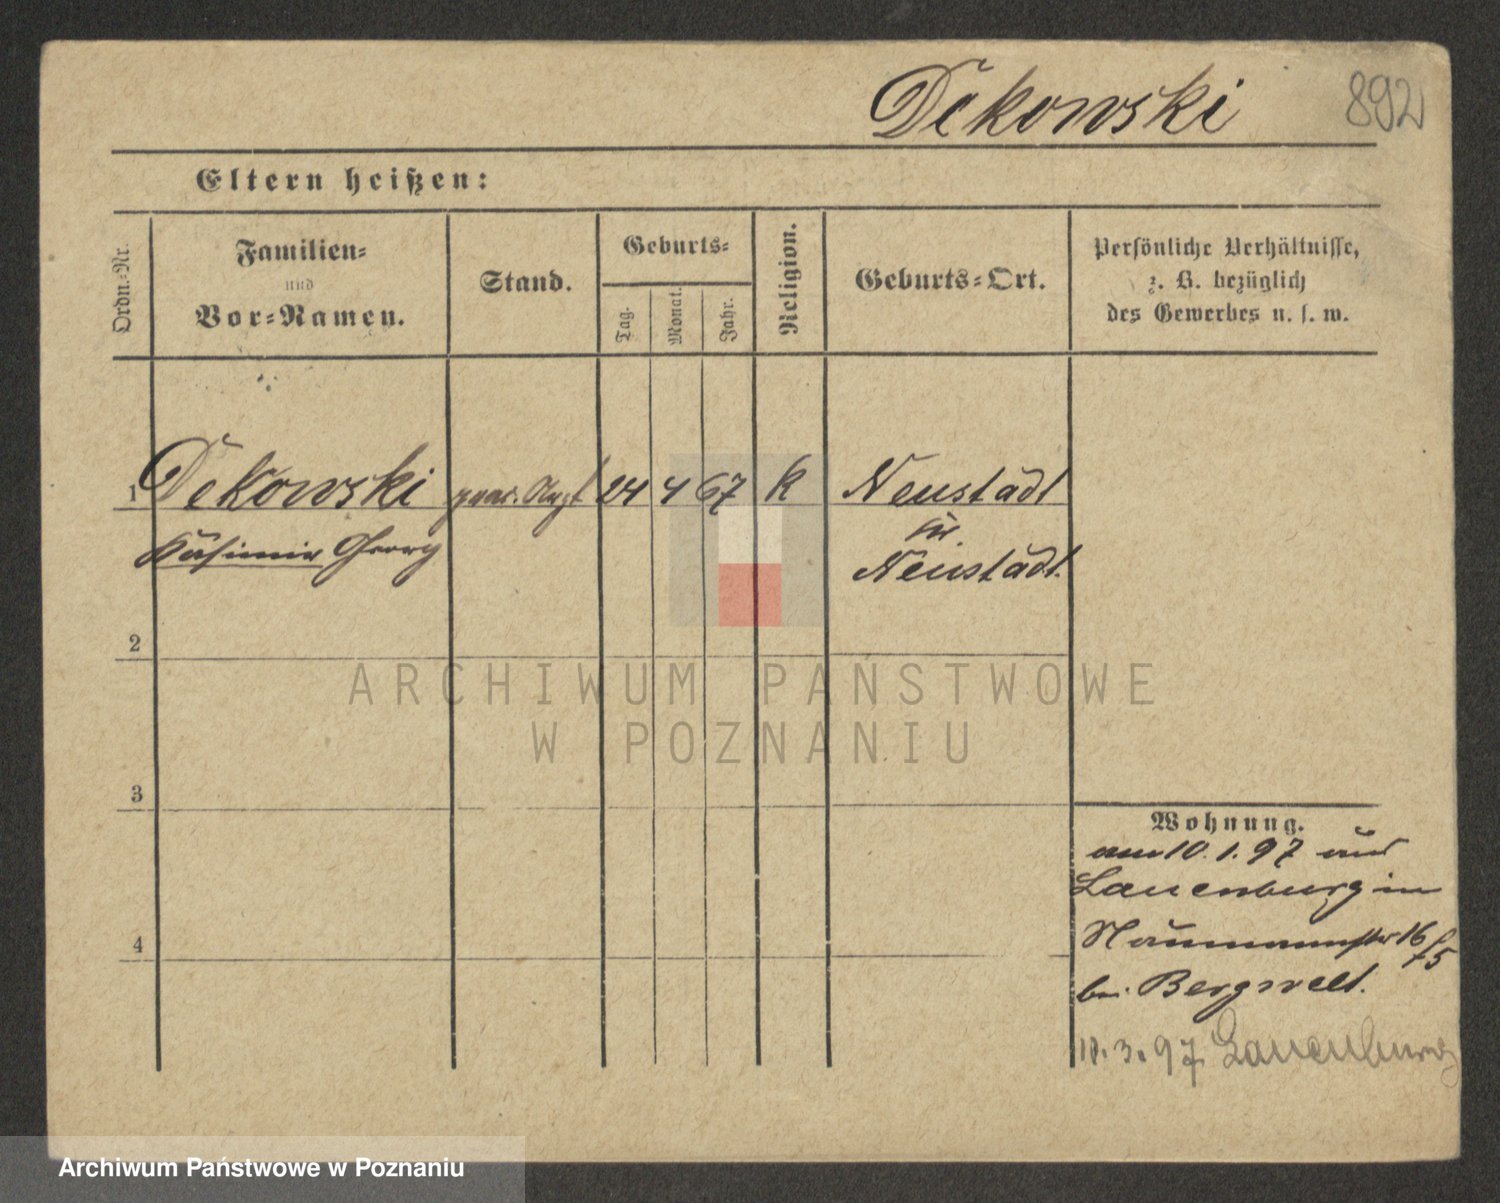 Dekowski 892
Eltern heißen:
Ordn.-Nr.
Familien-
und
Vor-Namen.
Stand.
Geburts-
Tag.
Monat.
Jahr.
Religion.
Geburts-Ort.
Persönliche Verhältnisse,
z. B. bezüglich
des Gewerbes u. s. w.
1 Dekowski prac. Arzt 24 4 67 k Neustadt
Kasimir Georg
Kr.
Neustadt.
2
ARCHIWUM PAŃSTWOWE
W POZNANIU
3
Wohnung.
am 10. 1. 97 aus
Lauenburg in
Naumannstr 16
4
bei Bergwelt.
18. 3. 97 Lauenburg
Archiwum Państwowe w Poznaniu